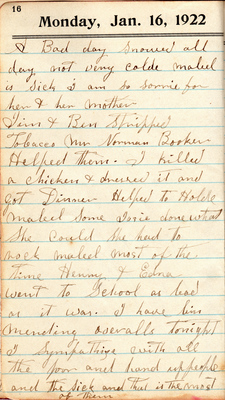 16
Monday, Jan. 16, 1922
A Bad day snowed all
day not very colde mabel
is sick i am so sorrie for
her & her mother
Tim & Ben Stripped
Tobacco Mr Norman Booker
Helped them. I killed
a chicken & dressed it and
got Dinner Helped to Holde
Mabel some Dosie done what
She could She had to
rock mabel most of the
Time Henry & Edna
went to School as bad
as it was. I have bin
mending overalls tonight
I Sympathise with all
the Poor and hand up people
and the sick and that is the most
of them